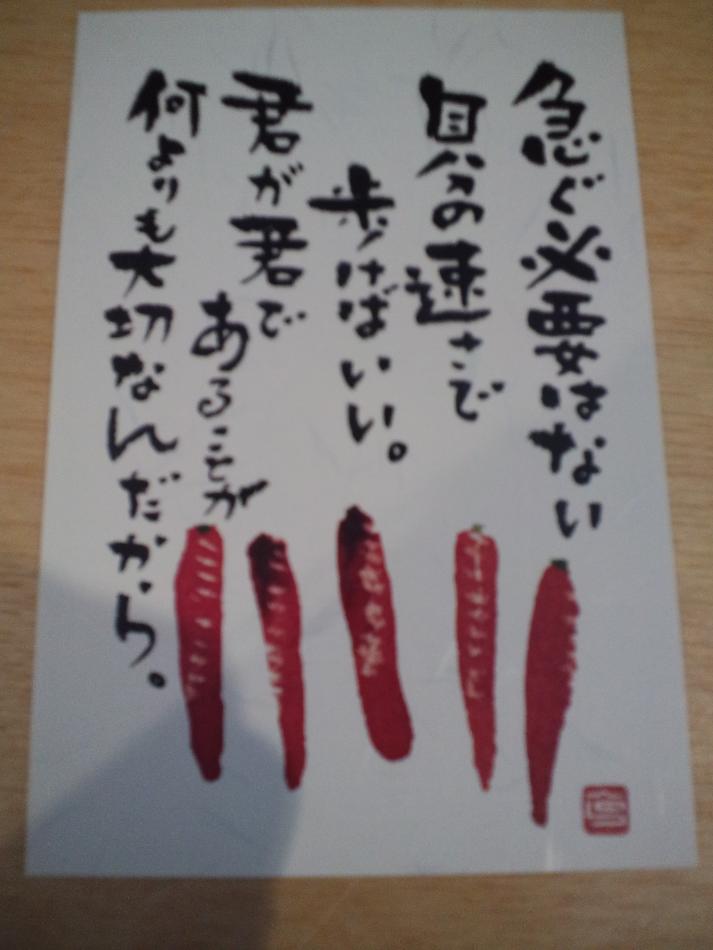 急ぐ必要はない
自分の速さで
歩けばいい。
君が君で
あることが
何よりも大切なんだから。